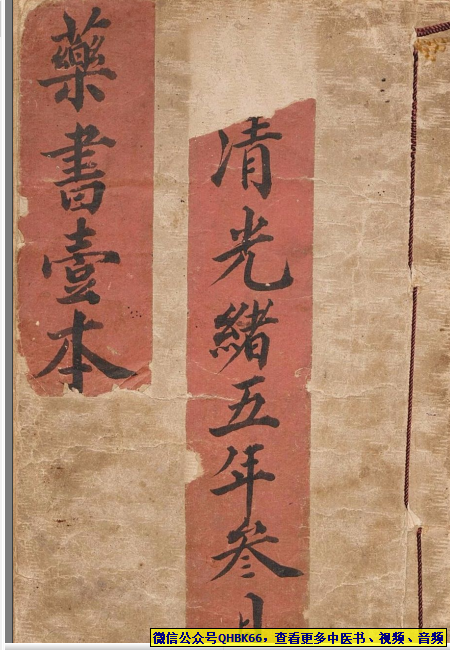 清光緒五年叁月
藥書壹本
微信公众号QHBK66，查看更多中医书、视频、音频